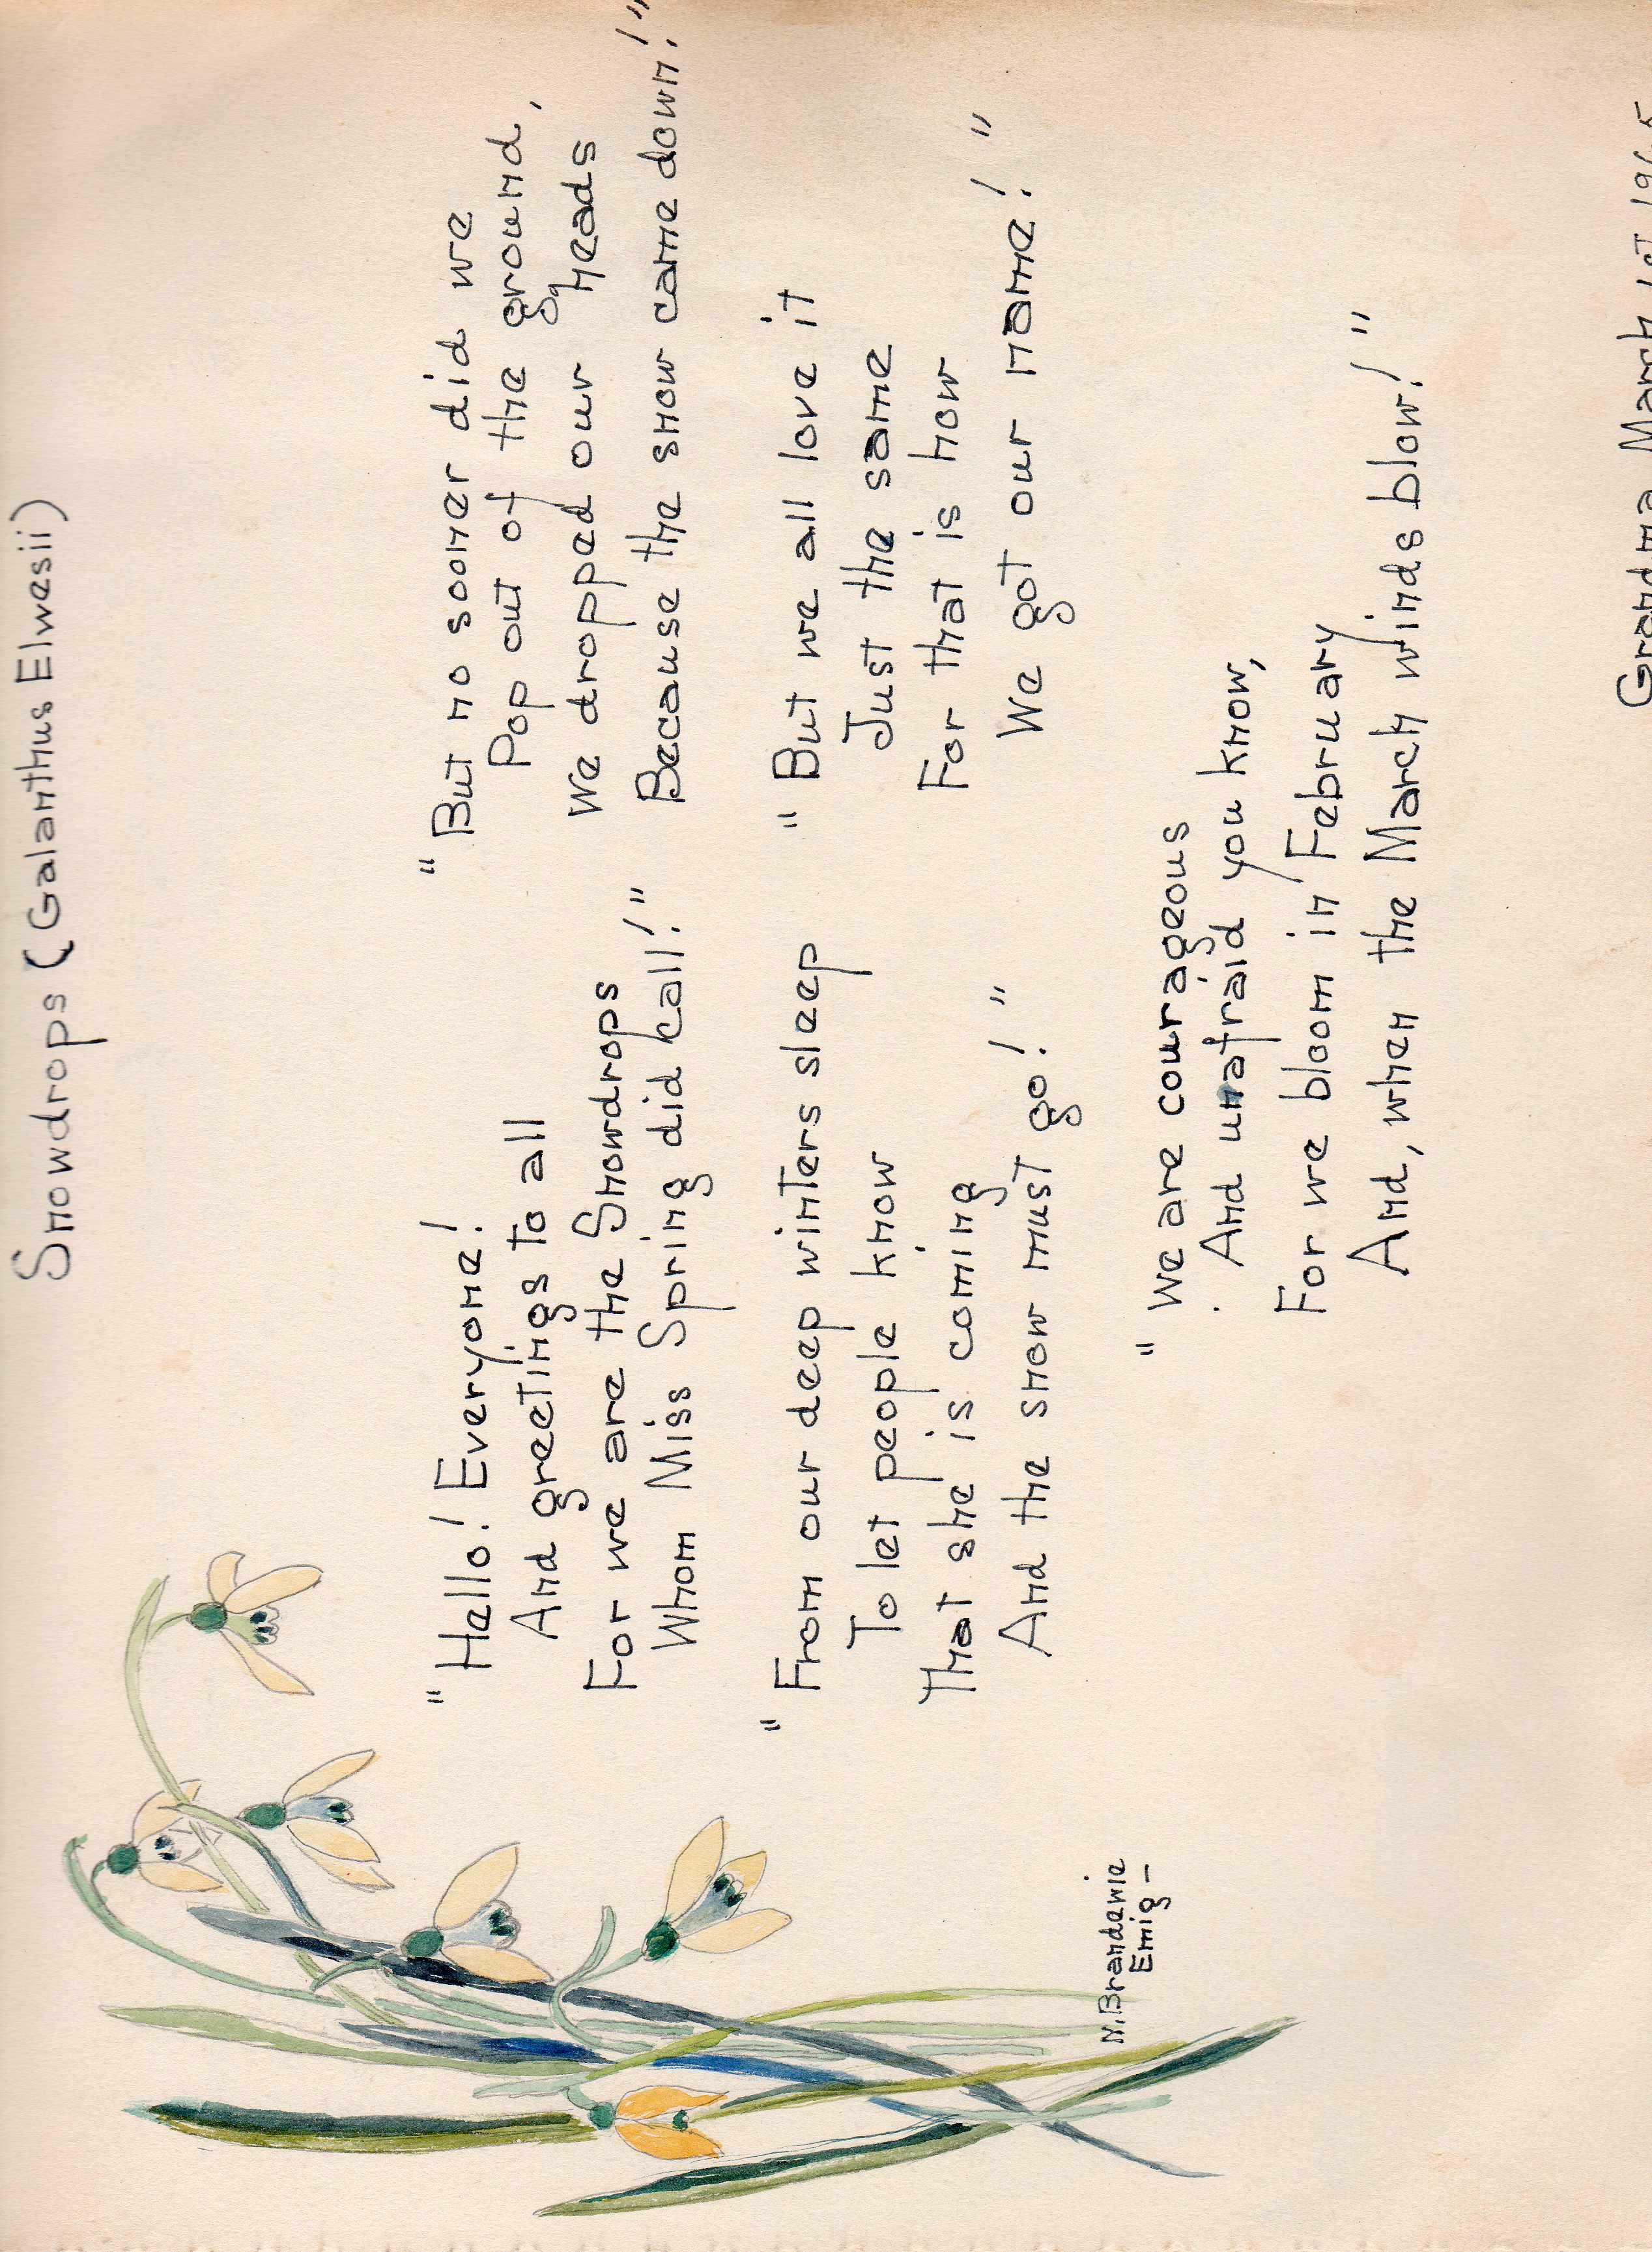 Snowdrops (Galanthus Elwesii)
"Hello! Everyone!
And greetings to all
For we are the Snowdrops
Whom Miss Spring did call!"
"From our deep winters sleep
To let people know
That she is coming
And the snow must go!"
"But no sooner did we
Pop out of the ground,
We dropped our heads
Because the snow came down!"
"But we all love it
Just the same
For that is how
We got our name!"
"We are courageous
And unafraid you know,
For we bloom in February
And, when the March winds blow!"
N. Brandewie
Emig-
Grandma March 1st 1965